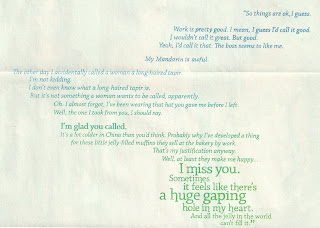 "So things are ok, I guess.
Work is pretty good. I mean, I guess I'd call it good.
I wouldn't call it great. But good.
Yeah, I'd call it that. The boss seems to like me.
My Mandarin is awful.
The other day I accidentally called a woman a long-haired tapir.
I'm not kidding.
I don't even know what a long-haired tapir is.
But it's not something a woman wants to be called, apparently.
Oh. I almost forgot, I've been wearing that hat you gave me before I left.
Well, the one I took from you, I should say.
I'm glad you called.
It's a lot colder in China than you'd think. Probably why I've developed a thing
for these little jelly-filled muffins they sell at the bakery by work.
That's my justification anyway.
Well, at least they make me happy...
I miss you.
Sometimes
it feels like there's
a huge gaping
hole in my heart.
And all the jelly in the world
can't fill it."